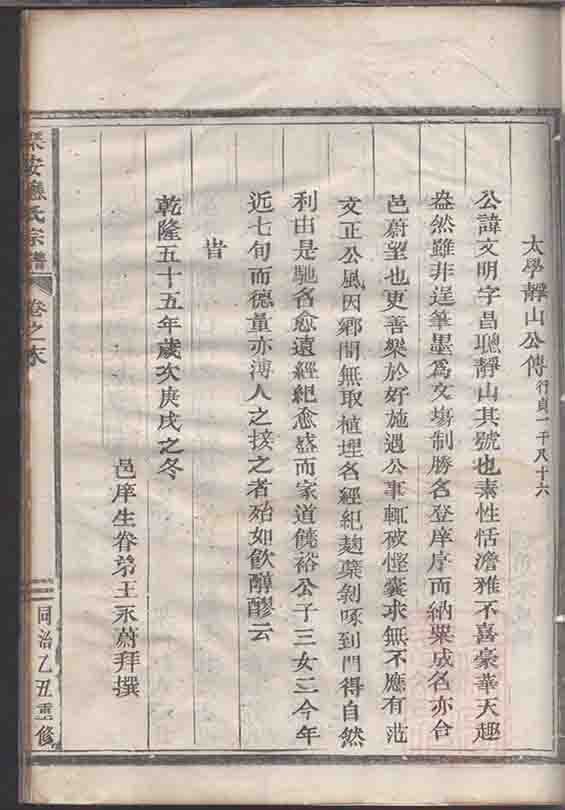 太學靜山公傳 行貞一千八十六
公諱文明字昌聰靜山其號也素性恬澹雅不喜豪華天趣
盎然雖非逞筆墨為文場制勝名登庠序而納粟成名亦台
邑蔚望也更善樂於好施遇公事輒破慳囊求無不應有范
文正公風因鄉間無取植埋名經紀麹櫱剝啄到門得自然
利由是馳名愈遠經紀愈盛而家道饒裕公子三女三今年
近七旬而德量亦溥人之接之者殆如飲醇醪云
旹
乾隆五十五年歲次庚戌之冬
邑庠生眷弟王永蔚拜撰
安應氏宗譜
卷之末
同治乙丑重修